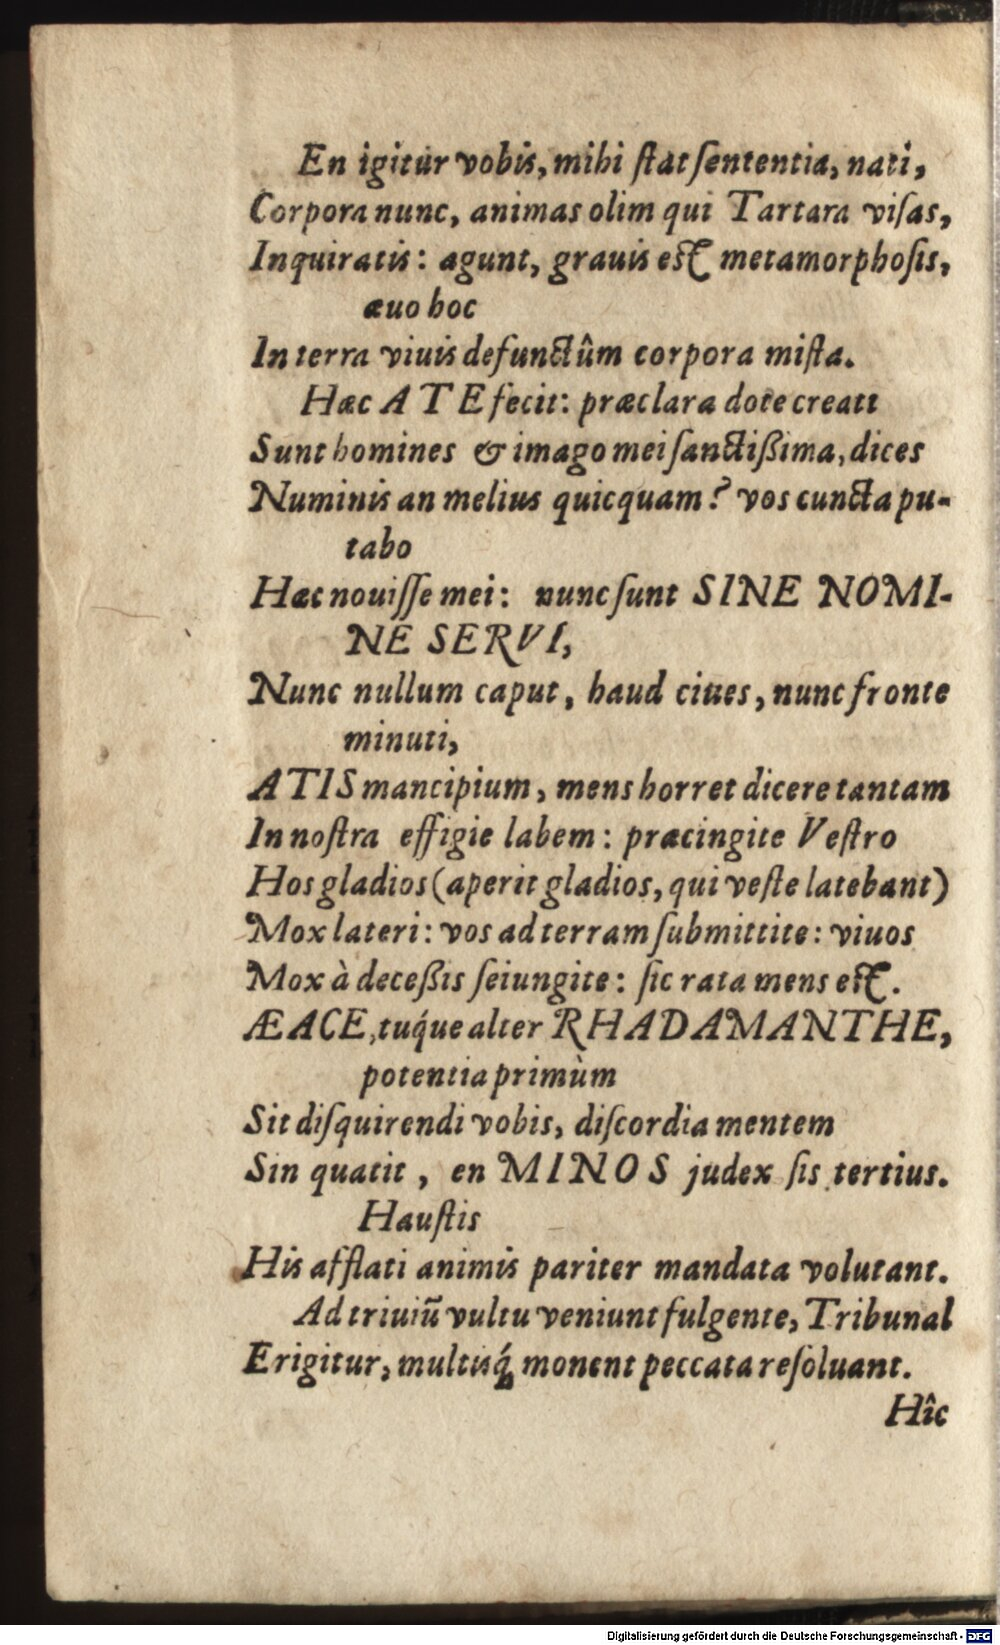 En igitur vobis, mihi ſtat ſententia, nati,
Corpora nunc, animas olim qui Tartara viſas,
Inquiratis: agunt, grauis eſt metamorphoſis,
æuo hoc
In terra viuis defunctûm corpora miſta.
Hæc ATE fecit: præclara dote creati
Sunt homines & imago mei ſanctißima, dices
Numinis an melius quicquam? vos cuncta pu-
tabo
Hæc nouiſſe mei: nunc ſunt SINE NOMI-
NE SERVI,
Nunc nullum caput, haud ciues, nunc fronte
minuti,
ATIS mancipium, mens horret dicere tantam
In noſtra effigie labem: præcingite Veſtro
Hos gladios (aperit gladios, qui veſte latebant)
Mox lateri: vos ad terram ſubmittite: viuos
Mox à deceßis ſeiungite: ſic rata mens eſt.
ÆACE, tuq́ue alter RHADAMANTHE,
potentia primùm
Sit diſquirendi vobis, diſcordia mentem
Sin quatit, en MINOS judex ſis tertius.
Hauſtis
His afflati animis pariter mandata volutant.
Ad triuiũ vultu veniunt fulgente, Tribunal
Erigitur, multisq́; monent peccata reſoluant.
Hîc
Digitalisierung gefördert durch die Deutsche Forschungsgemeinschaft - DFG